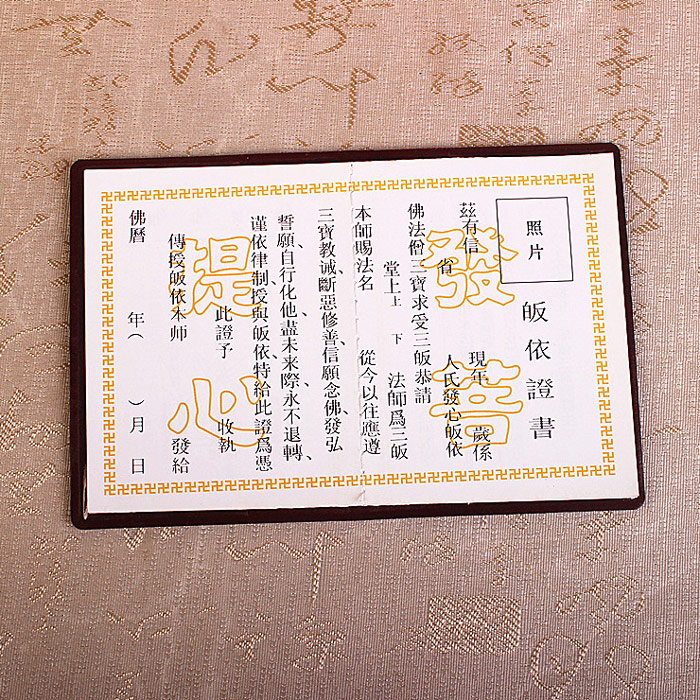 照片
皈依證書
茲有信 現年 歲係
省 人民發心皈依
佛法僧三寶求受三皈恭請
堂上上 下 法師爲三皈
本師賜法名 從今以往應遵
三寶教诫、斷惡修善、信願念佛、發弘
誓願、自行化他、盡未來際、永不退轉、
谨依律制、授與皈依、特给此證爲憑
此證予 收執
傳授皈依本师 發给
佛曆 年( )月 日
發菩
提心